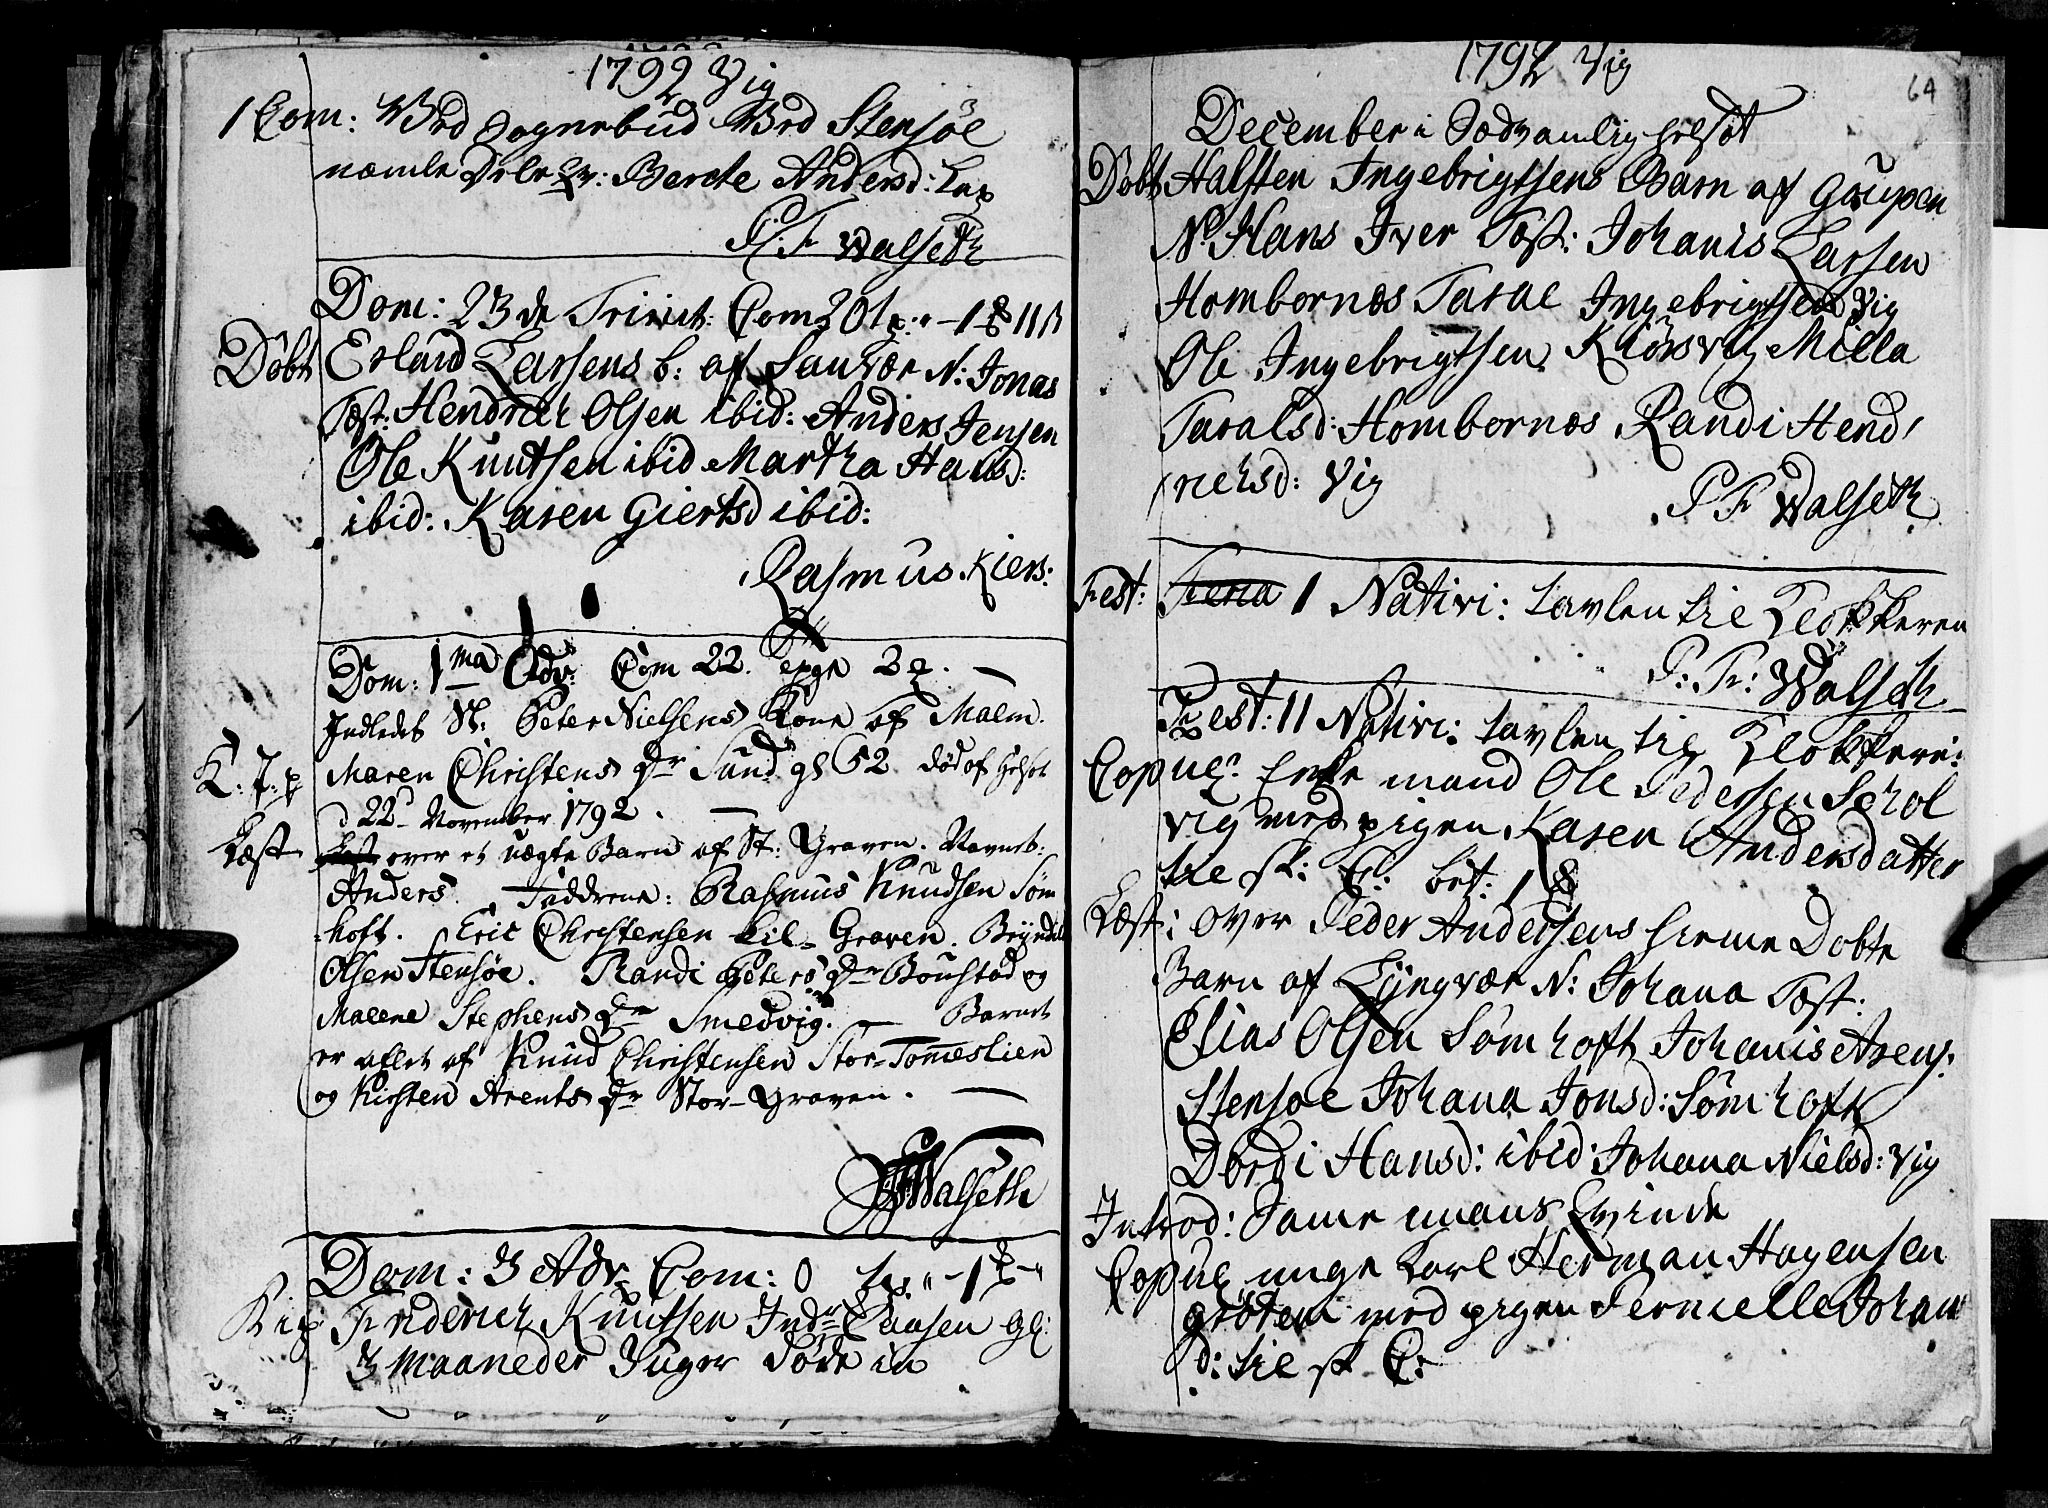 1792 Vig
1 Com: Ved Sognebud Ved Stensöe
nemle Berete Andersd: Lap
P. F. Walseth
Dom: 23 de Trinit: Com 20
Döbt Erland Larsens b: af Sanvær N: Jonas
Test: Hendrich Olsen ibid: Anders Jensen
Ole Knutsen ibid Martha Hansd:
ibid: Karen Giertsd ibid:
Rasmus Kiers:
Dom: 1ma Adv: Com 22.
Indledet St: Peter Nielsens Kone af Malm.
K: J: p Maren Christens Dr Sund gl 62 död af helsot
d 22 November 1792.
Læst over et uægte Barn af St: Graven. Navnet:
Anders. Faddrene: Rasmus Knudsen Söm
hoft. Eric Christensen Lil-Graven. Bryndel
Olsen Stensöe. Randi Peters Dr Boustad og
Malene Stephens Dr Smedvig. Barnet
er aflet af Knud Christensen Stor-Tommeslien
og Kirsten Arents Dr Stor-Graven.
PF Walseth
Dom: 3 Adv Com: 0
Friderich Knutsen Indr gl:
3 Maaneder 3 uger döde in
1792 Vig
64
December i Sædvanlig helsöt
Döbt Halsten Ingebrigtsens Barn af Gaupen
N: Hans Iver Test: Johanis Larsen
Hombornes Taral Ingebrigtsen Vig
Ole Ingebrigtsen Kiörsvig Milla
Taralsd: Hombornes Randi Hend
richsd: Vig
P F Walseth
Fest: Feria 1 Nativi: tavlen til Klokkeren
P: F: Walseth
Fest: II Nativi: tavlen til Klokkere:
Copul: Enke mand Ole Pedersen Schol
vig med pigen Karen Andersdatter
til sk: E: bet: 1
Læst: over Peder Andersens hieme Döbte
Barn af Lyngvær N: Johana Test:
Elias Olsen Sömhoft Johanis Arens:
Stensoe Johana Jonsd: Sömhoft
Dordi Hansd: ibid: Johana Nielsd: Vig
Introd: Same mans Qvinde
Copul unge Karl Herman Hagensen
gröten med pigen Pernielle Johan
d: til sk E: